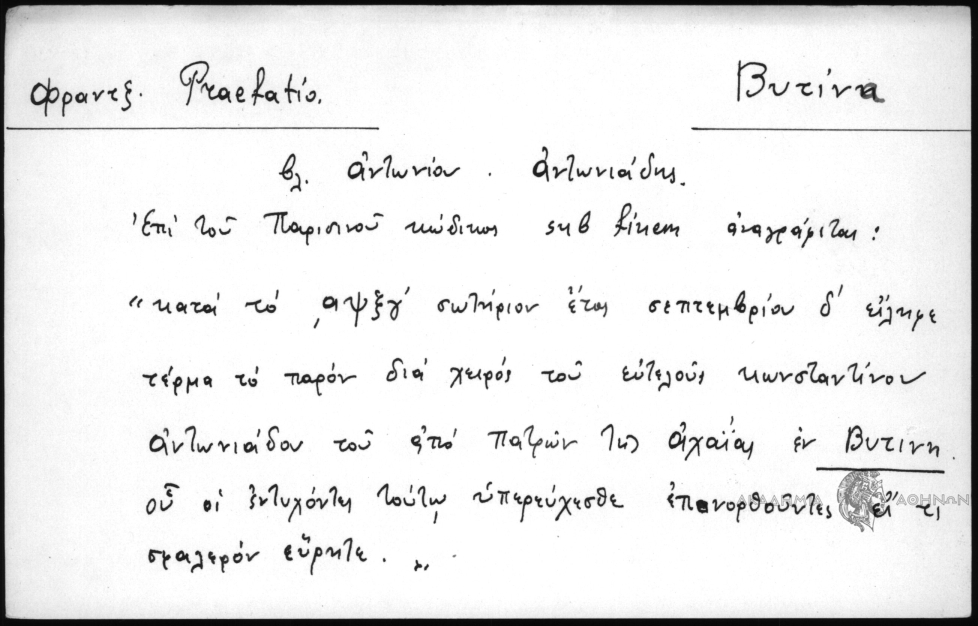 Φραντζ. Praefatio. Βυτίνα
βλ. Ἀντωνίου . Ἀντωνιάδης.
Ἐπί τοῦ Παρισινοῦ κώδικος sub finem ἀναγράφεται :
"κατά τό ͵αψξγ' σωτήριον ἔτος σεπτεμβρίου δ' εἴληφε
τέρμα τό παρόν διά χειρός τοῦ εὐτελοῦς κωνσταντίνου
Ἀντωνιάδου τοῦ ἀπό πατρῶν τῆς Ἀχαΐας ἐν Βυτίνη.
οὗ οἱ ἐντυχόντες τούτῳ ὑπερεύχεσθε ἐπανορθοῦντες εἴ τι
σφαλερόν εὕρητε . "
ΑΚΑΔΗΜΙΑ ΑΘΗΝΩΝ